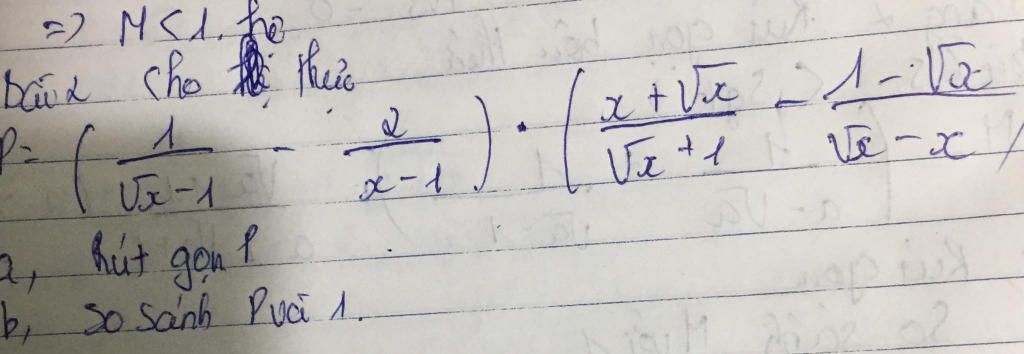 => M < 1.
bài 2 Cho thức
P = ( 1/(√x - 1) - 2/(x - 1) ) · ( (x + √x)/(√x + 1) - (1 - √x)/(√x - x) )
a, Rút gọn P
b, So sánh P với 1.